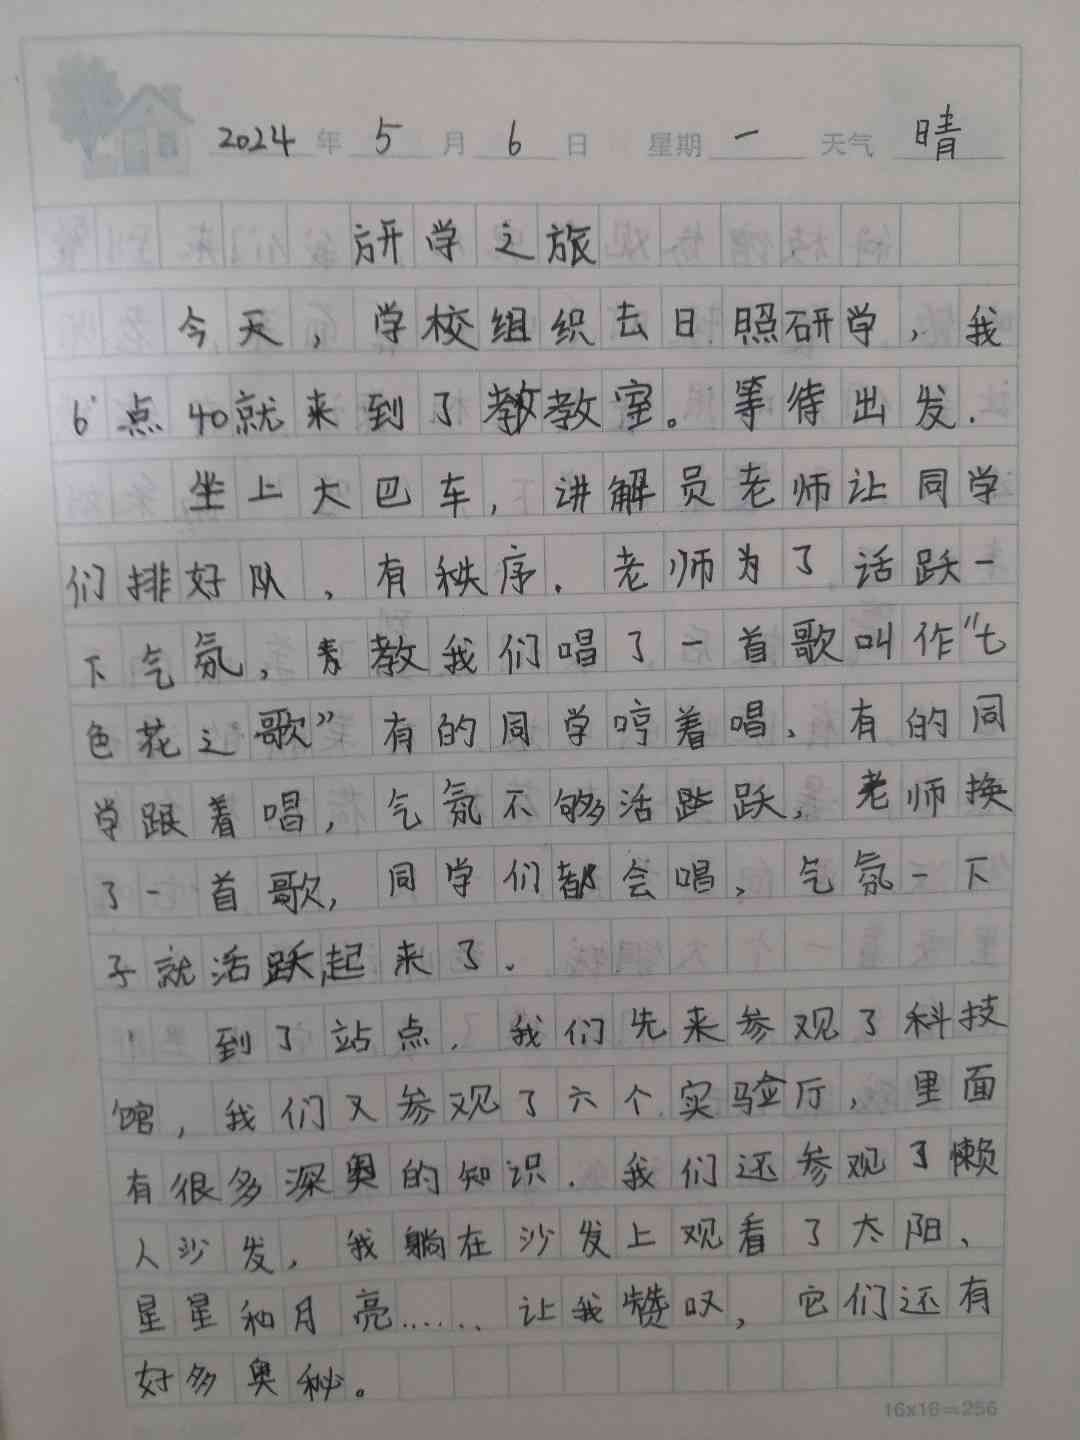 2024年 5月 6日 星期 一 天气 晴
研学之旅
今天，学校组织去日照研学，我
6点40就来到了教室。等待出发.
坐上大巴车，讲解员老师让同学
们排好队，有秩序.老师为了活跃一
下气氛，教我们唱了一首歌叫作“七
色花之歌”有的同学哼着唱、有的同
学跟着唱，气氛不够活跃，老师换
了一首歌，同学们都会唱、气氛一下
子就活跃起来了.
到了站点.我们先来参观了科技
馆，我们又参观了六个实验厅，里面
有很多深奥的知识.我们还参观了懒
人沙发，我躺在沙发上观看了太阳、
星星和月亮......让我赞叹，它们还有
好多奥秘。
16x16=256